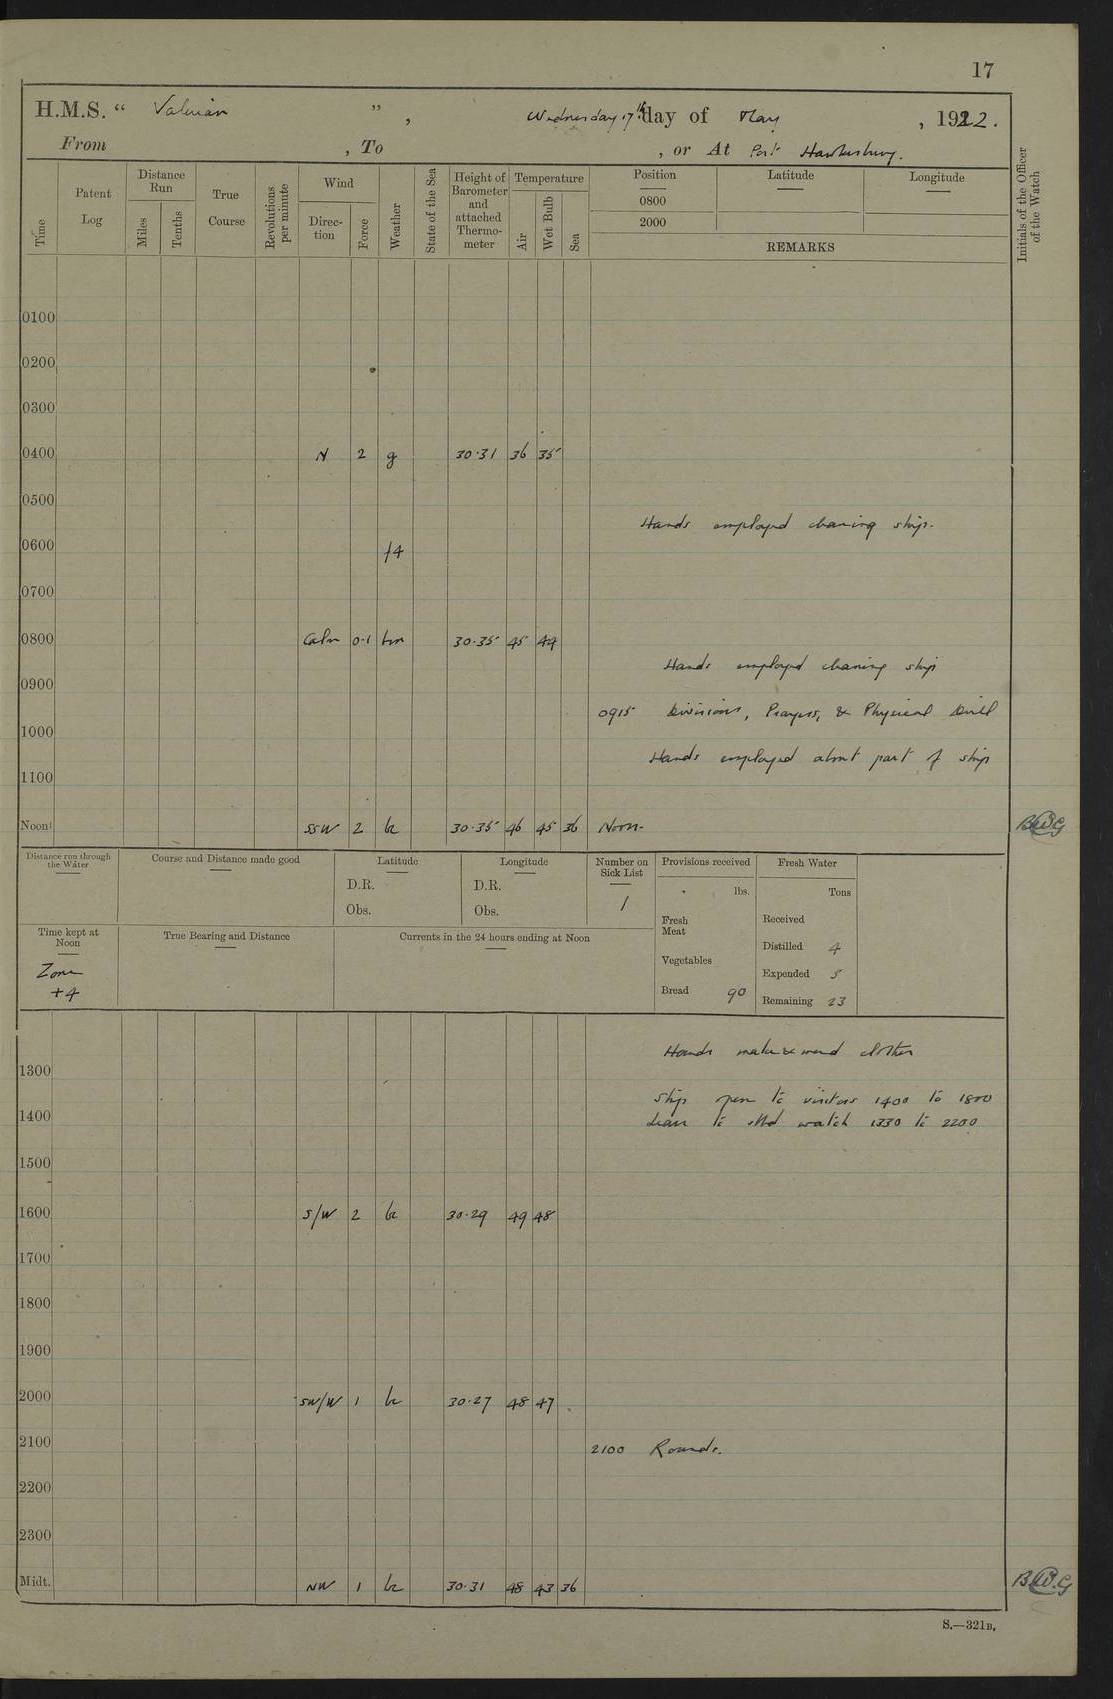 17
H.M.S. “ Valerian ” , Wednesday 17th day of May , 1922.
From , To , or At Port Hawkesbury.
Time
Patent Log
Distance Run
Miles
Tenths
True Course
Revolutions per minute
Wind
Direc- tion
Force
Weather
State of the Sea
Height of Barometer and attached Thermo- meter
Temperature
Air
Wet Bulb
Sea
Position Latitude Longitude
0800
2000
REMARKS
Initials of the Officer of the Watch
0100
0200
0300
0400 N 2 g 30.31 36 35
0500
Hands employed cleaning ship.
0600 f4
0700
0800 Calm 0.1 bm 30.35 45 44
Hands employed cleaning ship
0900
0915 Divisions, Prayers, & Physical Drill
1000
Hands employed about part of ship
1100
Noon SSW 2 bc 30.35 46 45 36 Noon.
Distance run through the Water
Course and Distance made good
Latitude
D.R.
Obs.
Longitude
D.R.
Obs.
Number on Sick List
1
Provisions received
lbs.
Fresh Meat
Vegetables
Bread 90
Fresh Water
Tons
Received
Distilled 4
Expended 5
Remaining 23
Time kept at Noon
Zone
+4
True Bearing and Distance
Currents in the 24 hours ending at Noon
Hands make & mend clothes
1300
Ship open to visitors 1400 to 1800
1400
Leave to stbd watch 1330 to 2200
1500
1600 S/W 2 bc 30.29 49 48
1700
1800
1900
2000 SW/W 1 bc 30.27 48 47
2100
2100 Rounds.
2200
2300
Midt. NW 1 bc 30.31 48 43 36
S.—321B.